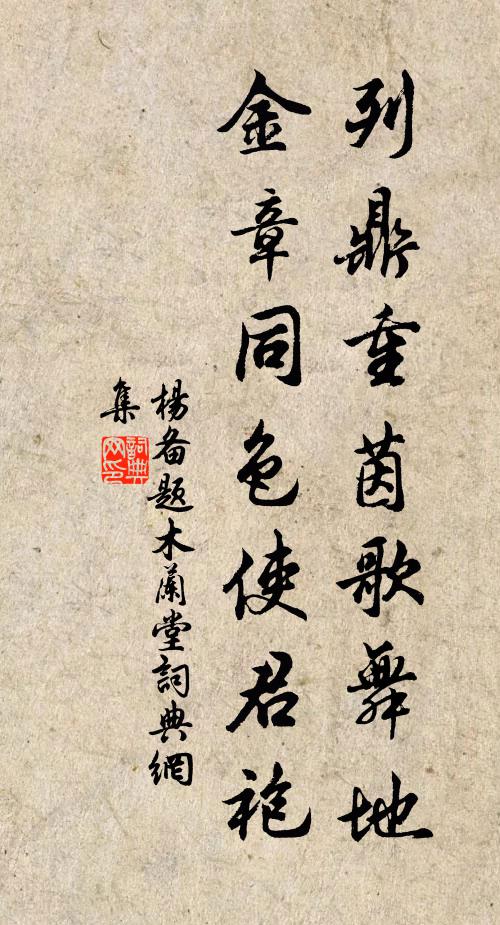 列鼎重茵歌舞地
金章同色使君袍
楊备题木蘭堂詞典網
集
詞典
网印